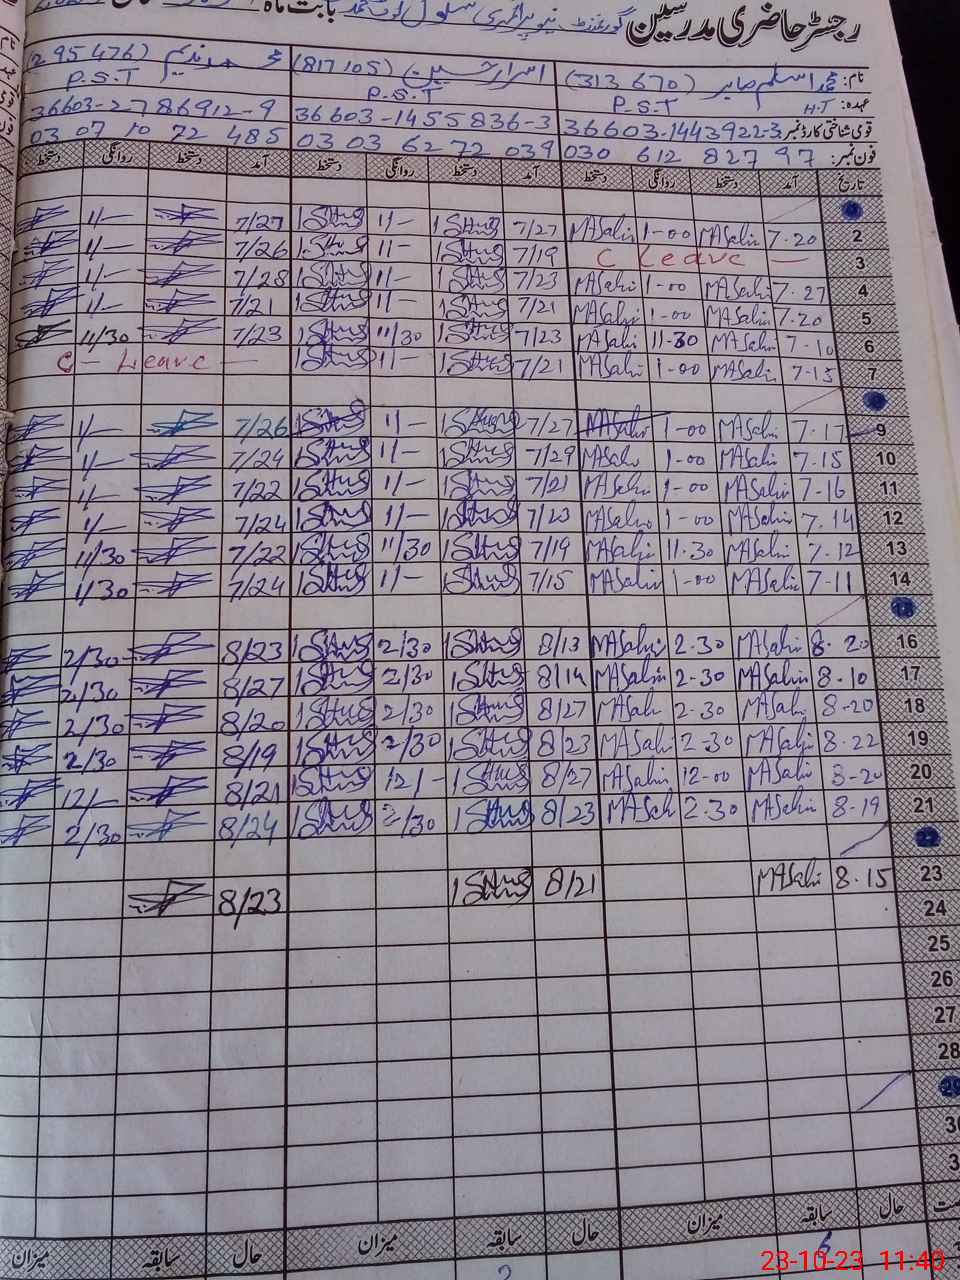 رجسٹر حاضری مدرسین گورنمنٹ نیو پرائمری سکول بابت ماہ
نام: محمد اسلم صابر (313 670) اسرار حسین (817 105) محمد ندیم (295 476)
عہدہ: H.T P.S.T P.S.T P.S.T
قومی شناختی کارڈ نمبر: 36603-1443922-3 36603-1455836-3 36603-2786912-9
فون نمبر: 030 612 827 97 03 03 62 72 039 03 07 10 72 485
تاریخ آمد دستخط روانگی دستخط آمد دستخط روانگی دستخط آمد دستخط روانگی دستخط
2 7-20 MASabir 1-00 MASabir 7/27 11- 7/27 1/-
3 C Leave — 7/19 11- 7/26 1/-
4 7-27 MASabir 1-00 MASabir 7/23 11- 7/28 1/-
5 7-20 MASabir 1-00 MASabir 7/21 11- 7/21 1/-
6 7-10 MASabir 11-30 MASabir 7/23 11/30 7/23 11/30
7 7-15 MASabir 1-00 MASabir 7/21 11- C - Leave —
9 7-17 MASabir 1-00 MASabir 7/27 11- 7/26 1/-
10 7-15 MASabir 1-00 MASabir 7/29 11- 7/24 1/-
11 7-16 MASabir 1-00 MASabir 7/21 11- 7/22 1/-
12 7-14 MASabir 1-00 MASabir 7/23 11- 7/24 1/-
13 7-12 MASabir 11-30 MASabir 7/19 11/30 7/22 11/30
14 7-11 MASabir 1-00 MASabir 7/15 11- 7/24 1/30
15
16 8-20 MASabir 2-30 MASabir 8/13 2/30 8/23 2/30
17 8-10 MASabir 2-30 MASabir 8/14 2/30 8/27 2/30
18 8-20 MASabir 2-30 MASabir 8/27 2/30 8/20 2/30
19 8-22 MASabir 2-30 MASabir 8/23 2/30 8/19 2/30
20 8-20 MASabir 12-00 MASabir 8/27 12/- 8/21 12/-
21 8-19 MASabir 2-30 MASabir 8/23 2/30 8/24 2/30
22
23 8-15 MASabir 8/21 8/23
24
25
26
27
28
29
30
حال سابقہ میزان حال سابقہ میزان حال سابقہ میزان
23-10-23 11:40